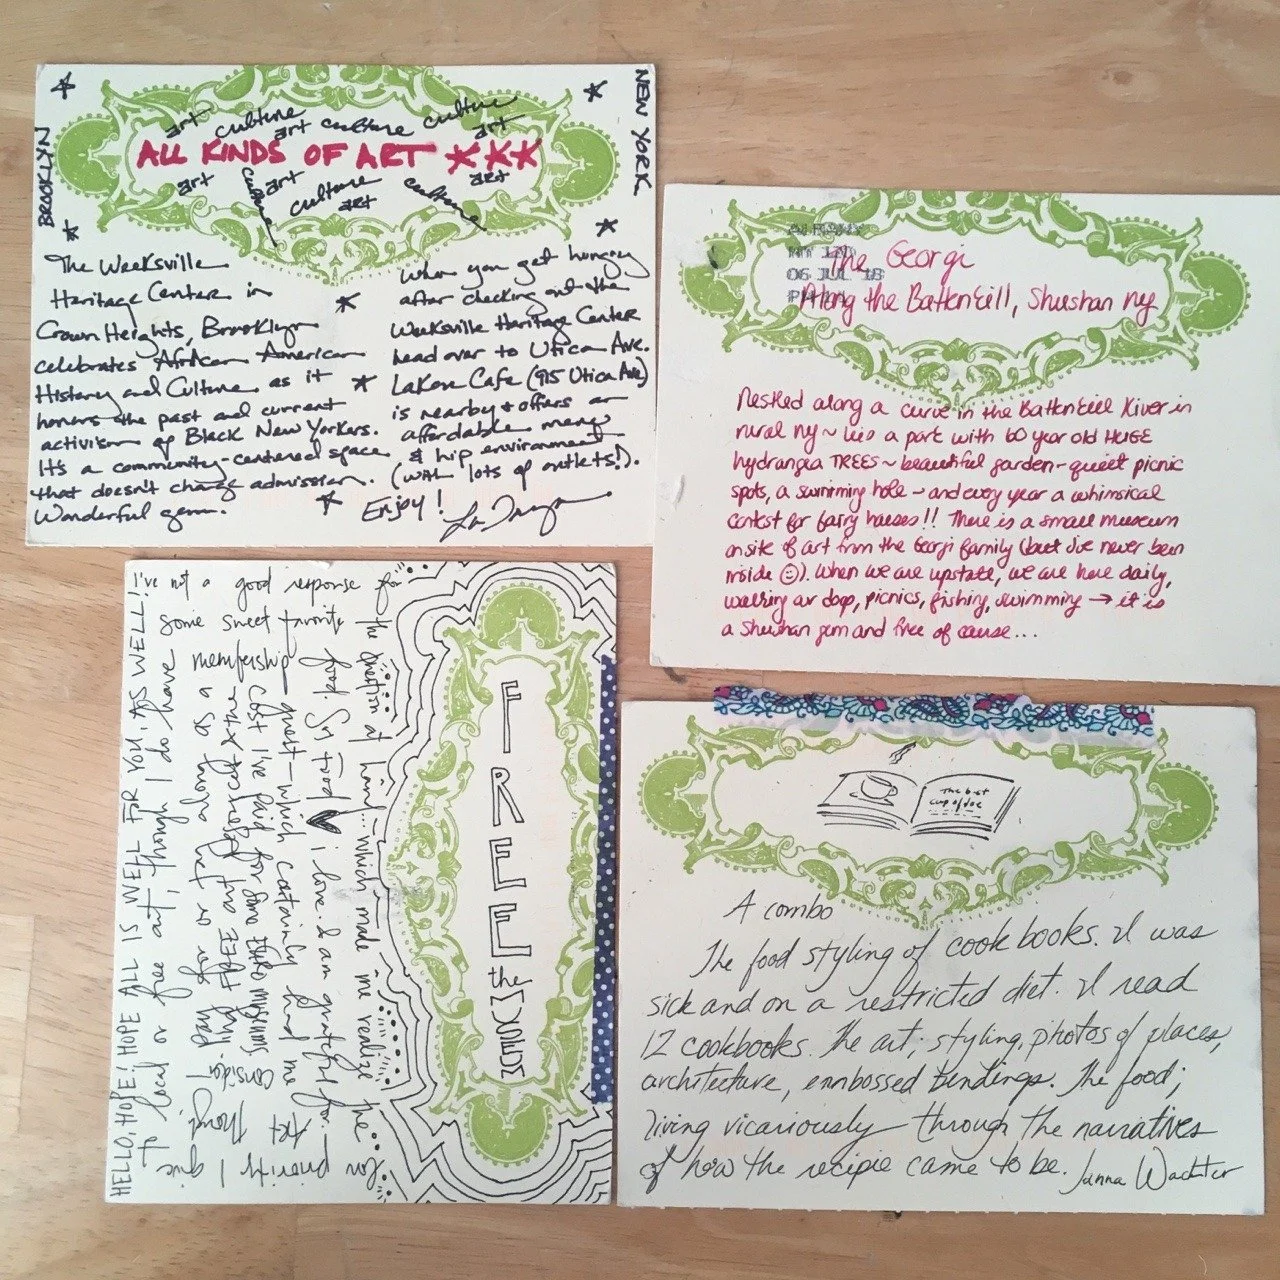 BROOKLYN
NEW YORK
art culture art culture culture art
ALL KINDS OF ART ***
art culture art culture art culture art
The Weeksville
Heritage Center in
Crown Heights, Brooklyn
celebrates African American
History and Culture as it
honors the past and current
activism of Black New Yorkers.
It's a community-centered space
that doesn't charge admission.
Wonderful gem.
When you get hungry
after checking out the
Weeksville Heritage Center
head over to Utica Ave.
LaKou Cafe (915 Utica Ave)
is nearby + offers an
affordable menu
& hip environment
(with lots of outlets!).
Enjoy!
ALBANY
NY 120
06 JUL 18
The Georgi
Along the Battenkill, Shushan ny
Nestled along a curve in the Battenkill River in
rural ny ~ lies a park with 60 year old HUGE
hydrangea TREES ~ beautiful garden - quiet picnic
spots, a swimming hole - and every year a whimsical
contest for fairy houses!! There is a small museum
on site of art from the Georgi family (but I've never been
inside ☺). When we are upstate, we are here daily,
walking our dogs, picnics, fishing, swimming → it is
a Shushan gem and free of course...
FREE
the
HELLO, HOPE! HOPE ALL IS WELL FOR YOU, AS WELL!
I've not a good response for
the question at hand... which made me realize the
low priority I give
to local or free art, though I do have
some sweet favorite
pay for or tac along as a
membership guest - which certainly had me
find FREE art
cost I've paid for some
consider.
Though,
for. Sy Food ♥ i love. I am grateful for
The best
cup of joe
A combo
The food styling of cook books. I was
sick and on a restricted diet. I read
12 cookbooks. The art, styling, photos of places,
architecture, ennbossed bindings. The food;
living vicariously through the narratives
of how the recipie came to be. Janna Wachter